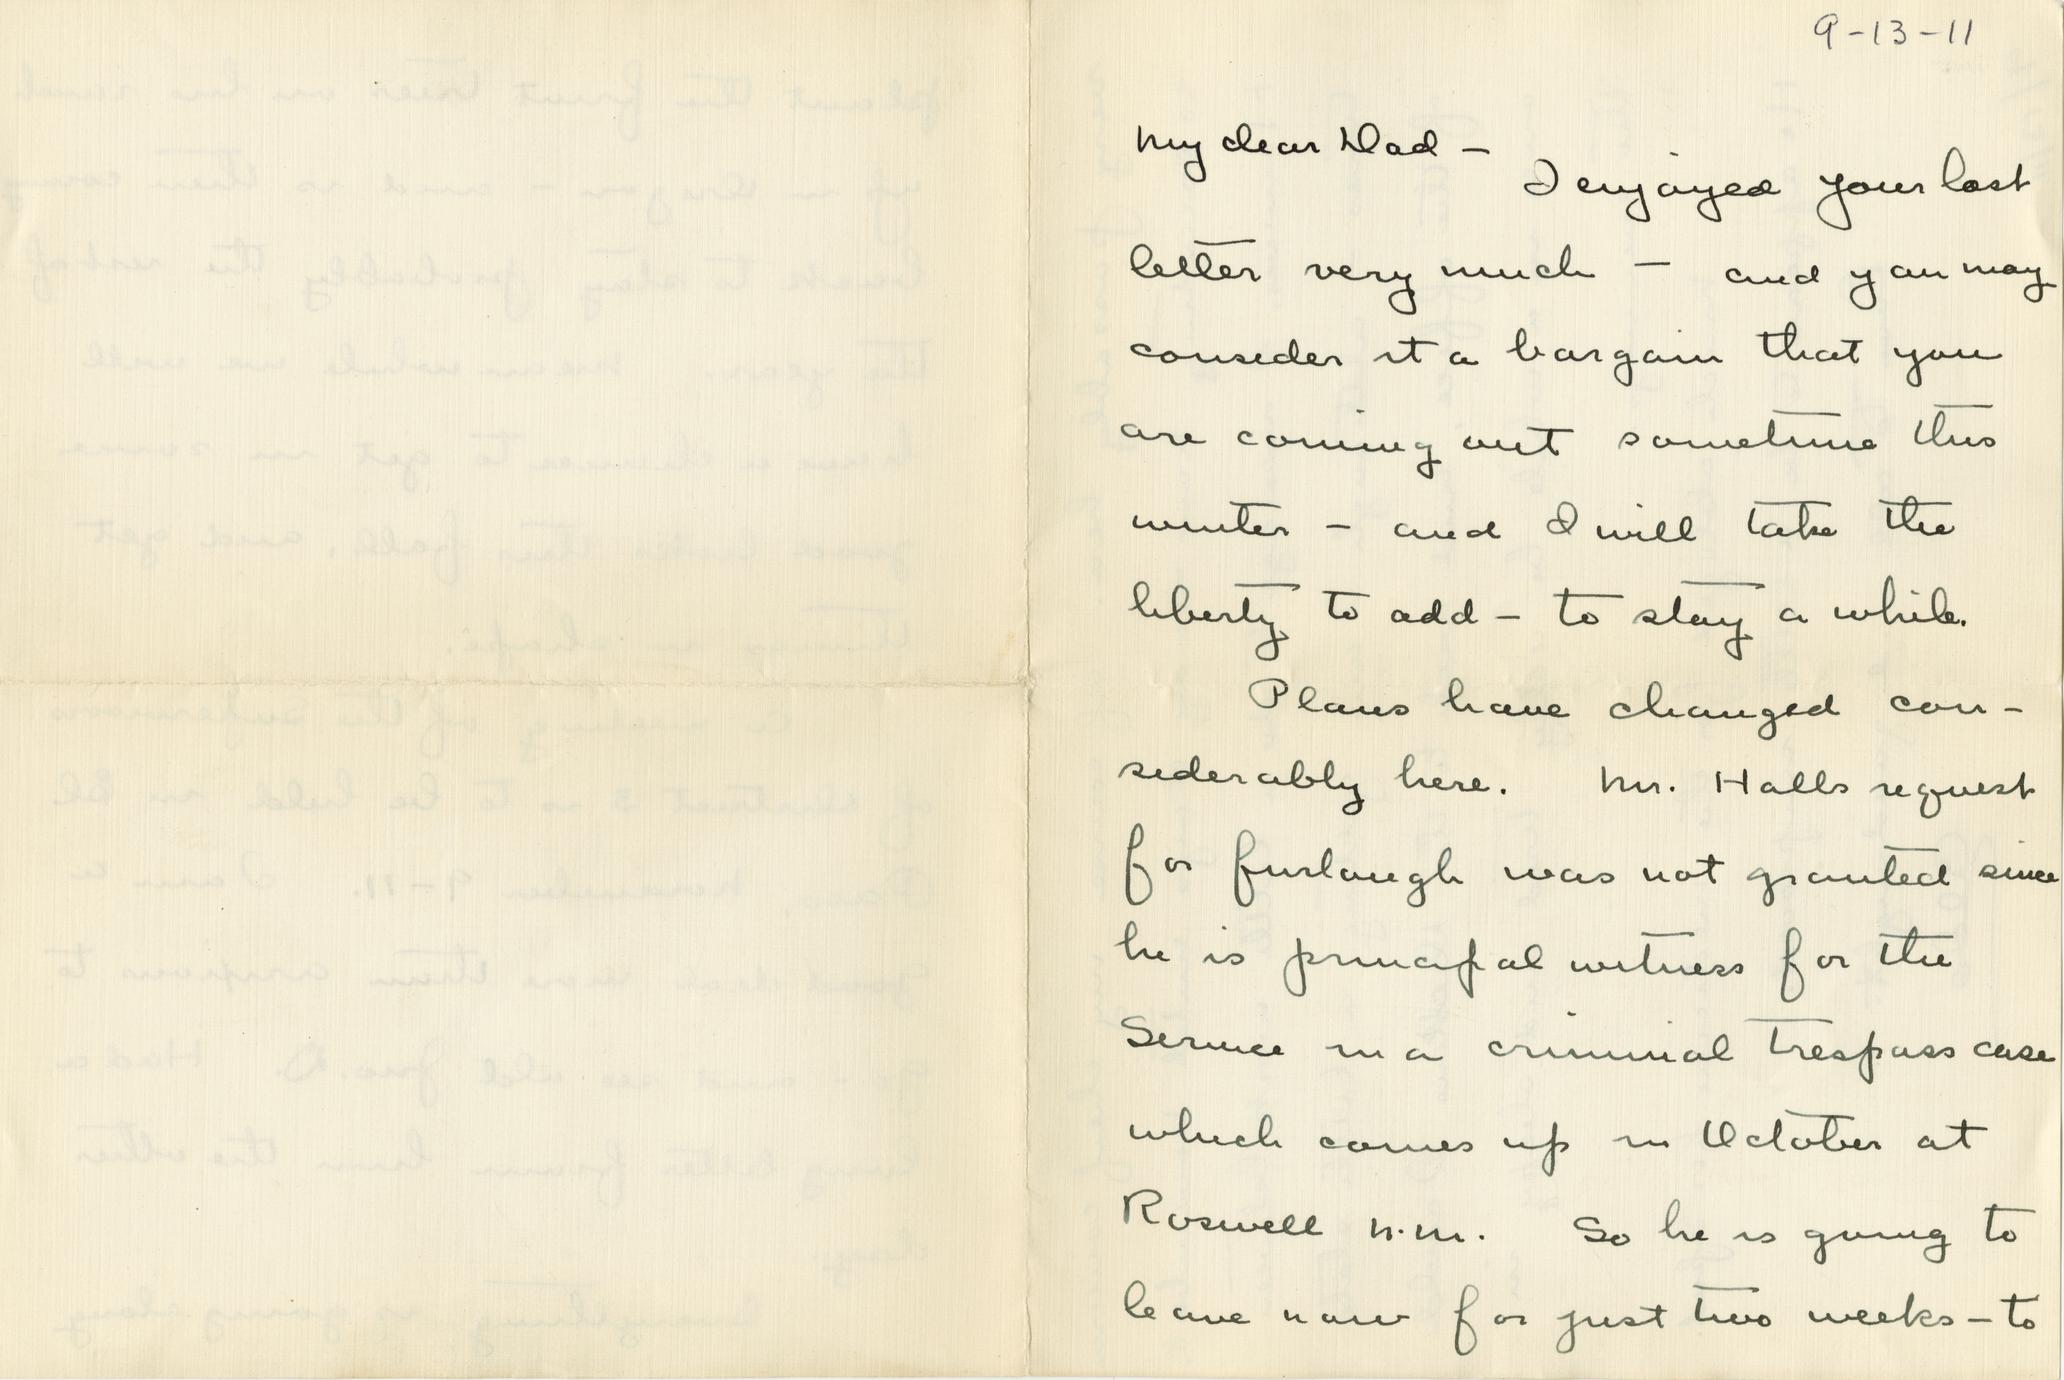 9-13-11
My dear Dad –
I enjoyed your last
letter very much – and you may
consider it a bargain that you
are coming out sometime this
winter – and I will take the
liberty to add – to stay a while.
Plans have changed con-
siderably here. Mr. Halls request
for furlough was not granted since
he is principal witness for the
Service in a criminal trespass case
which comes up in October at
Roswell N.M. So he is going to
leave now for just two weeks – to